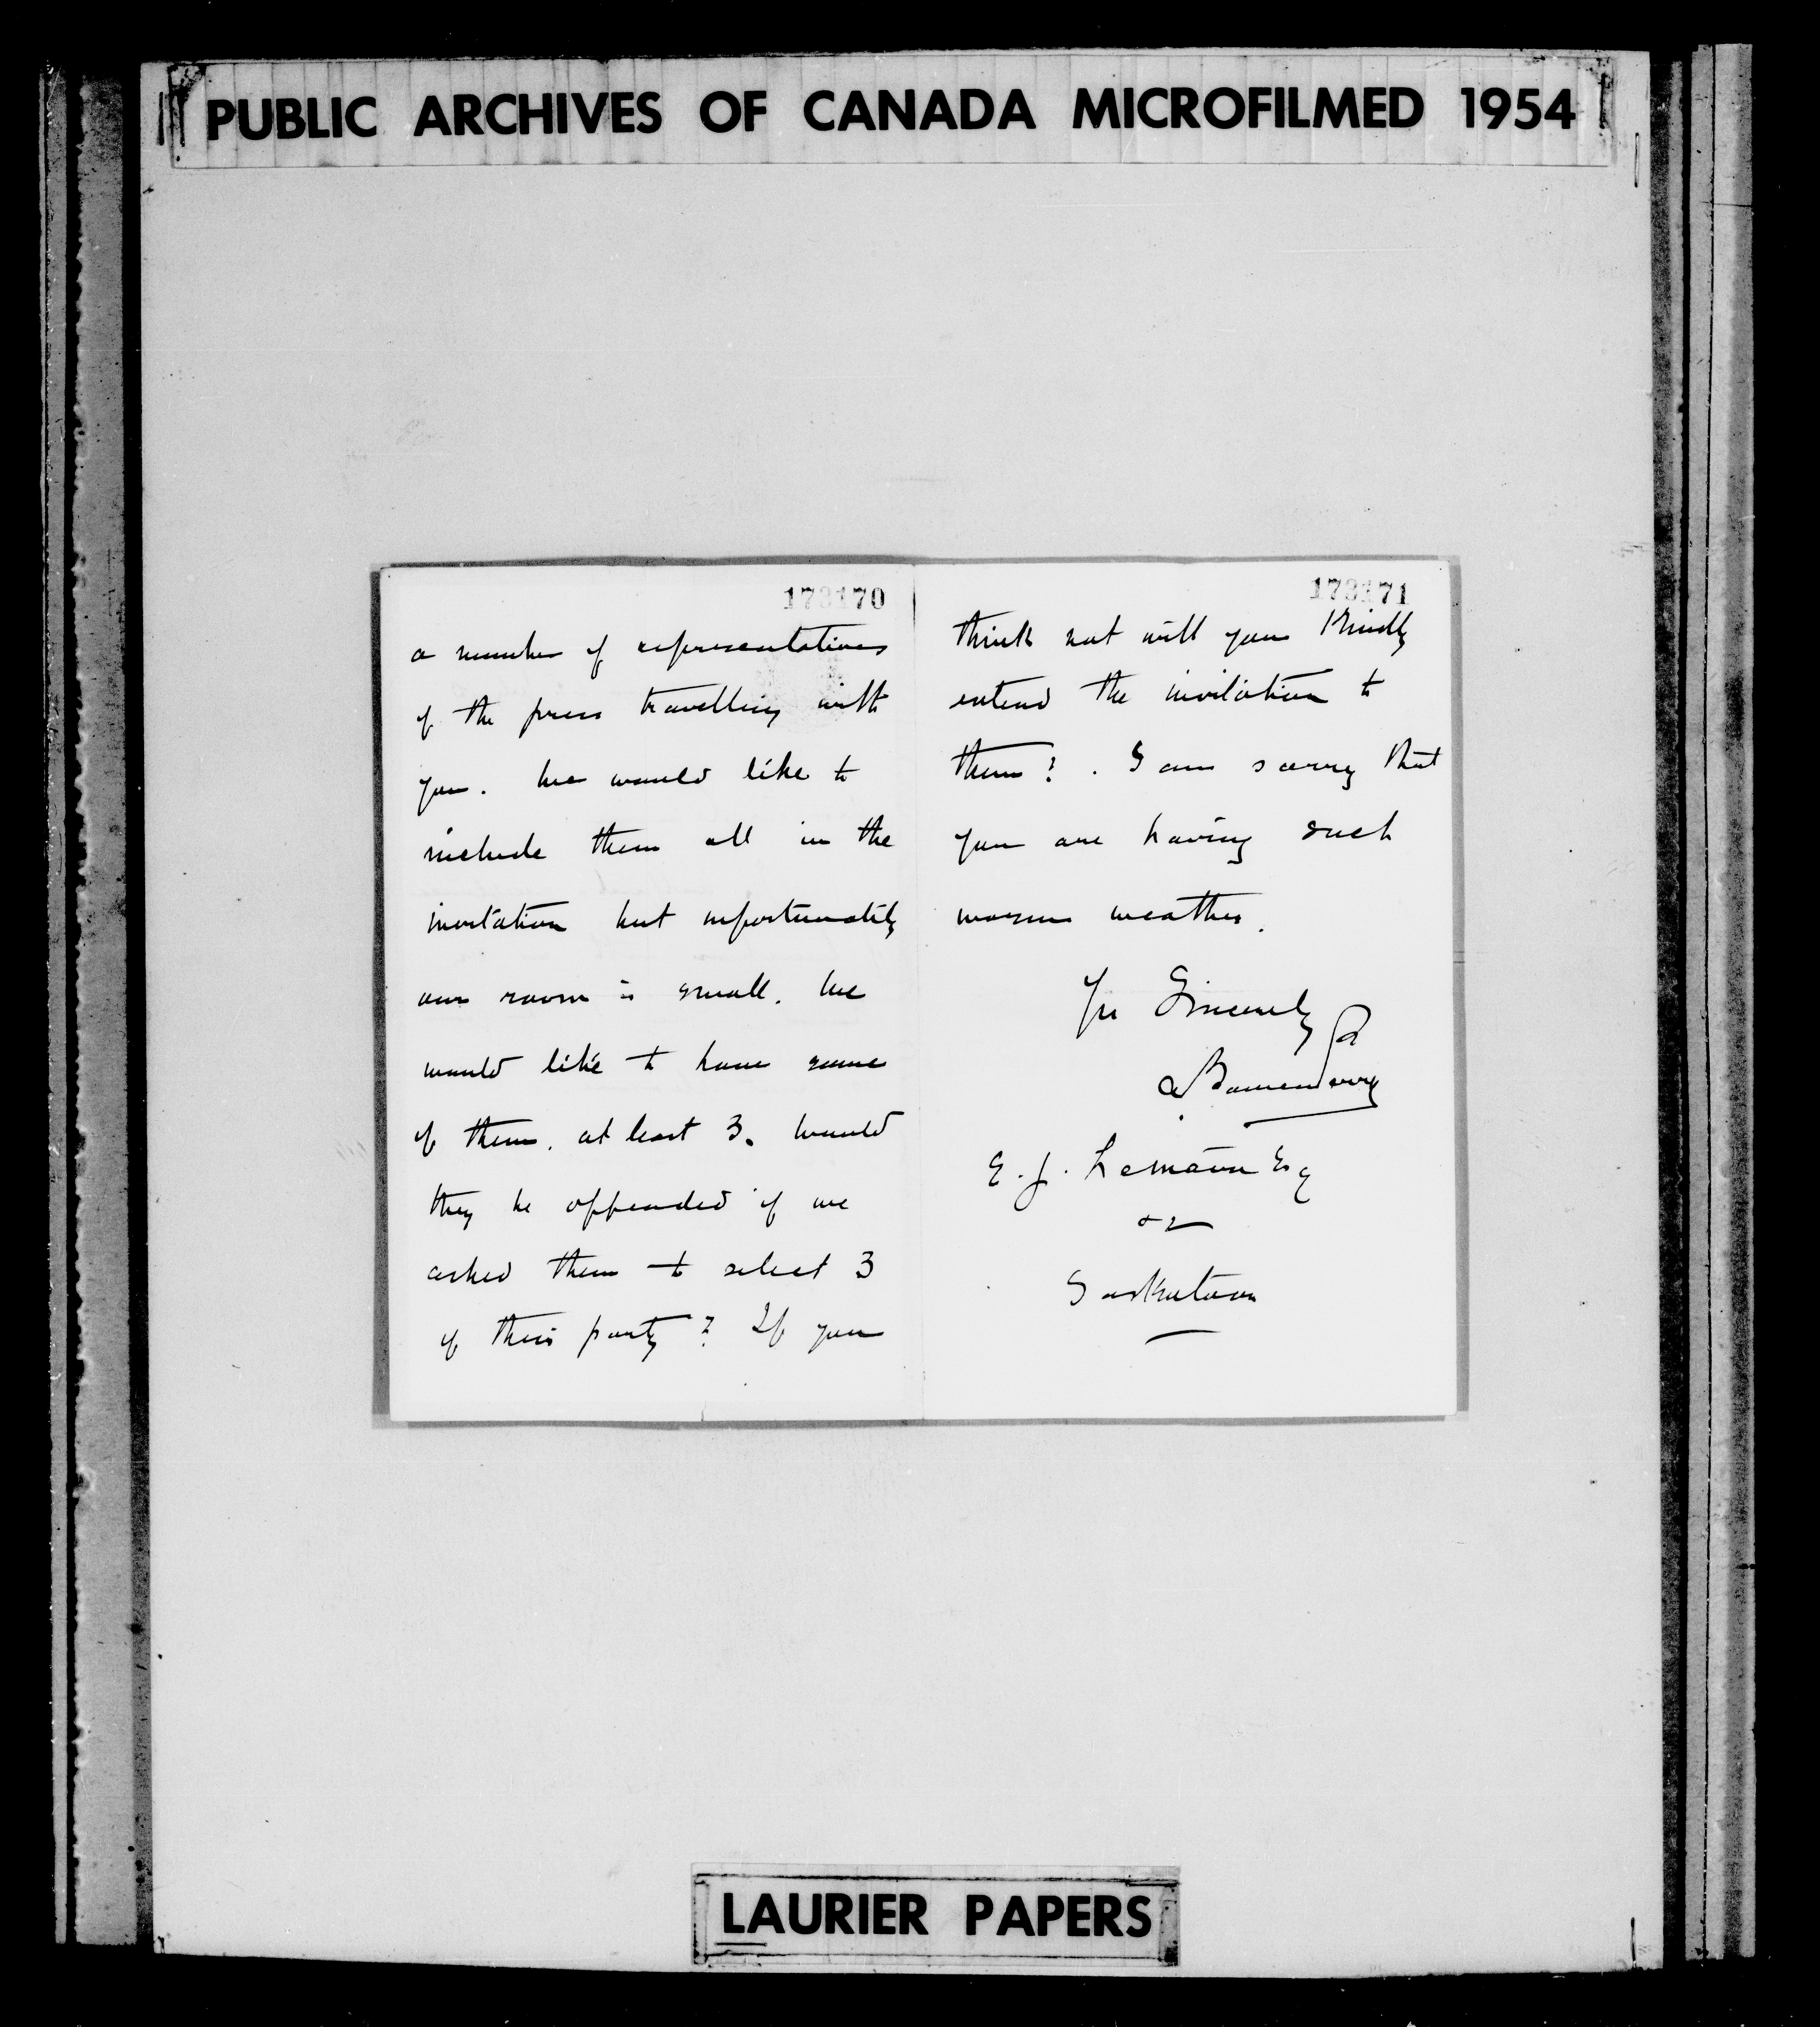 PUBLIC ARCHIVES OF CANADA MICROFILMED 1954
173170
a number of representatives
of the press travelling with
you. We would like to
include them all in the
invitation but unfortunately
our room is small. We
would like to have some
of them, at least 3. Would
they be offended if we
asked them to select 3
of their party? If you
173171
think not will you kindly
extend the invitation to
them?. I am sorry that
you are having such
warm weather.
Yrs Sincerely
E. J. Lemaire Esq
Saskatoon
LAURIER PAPERS